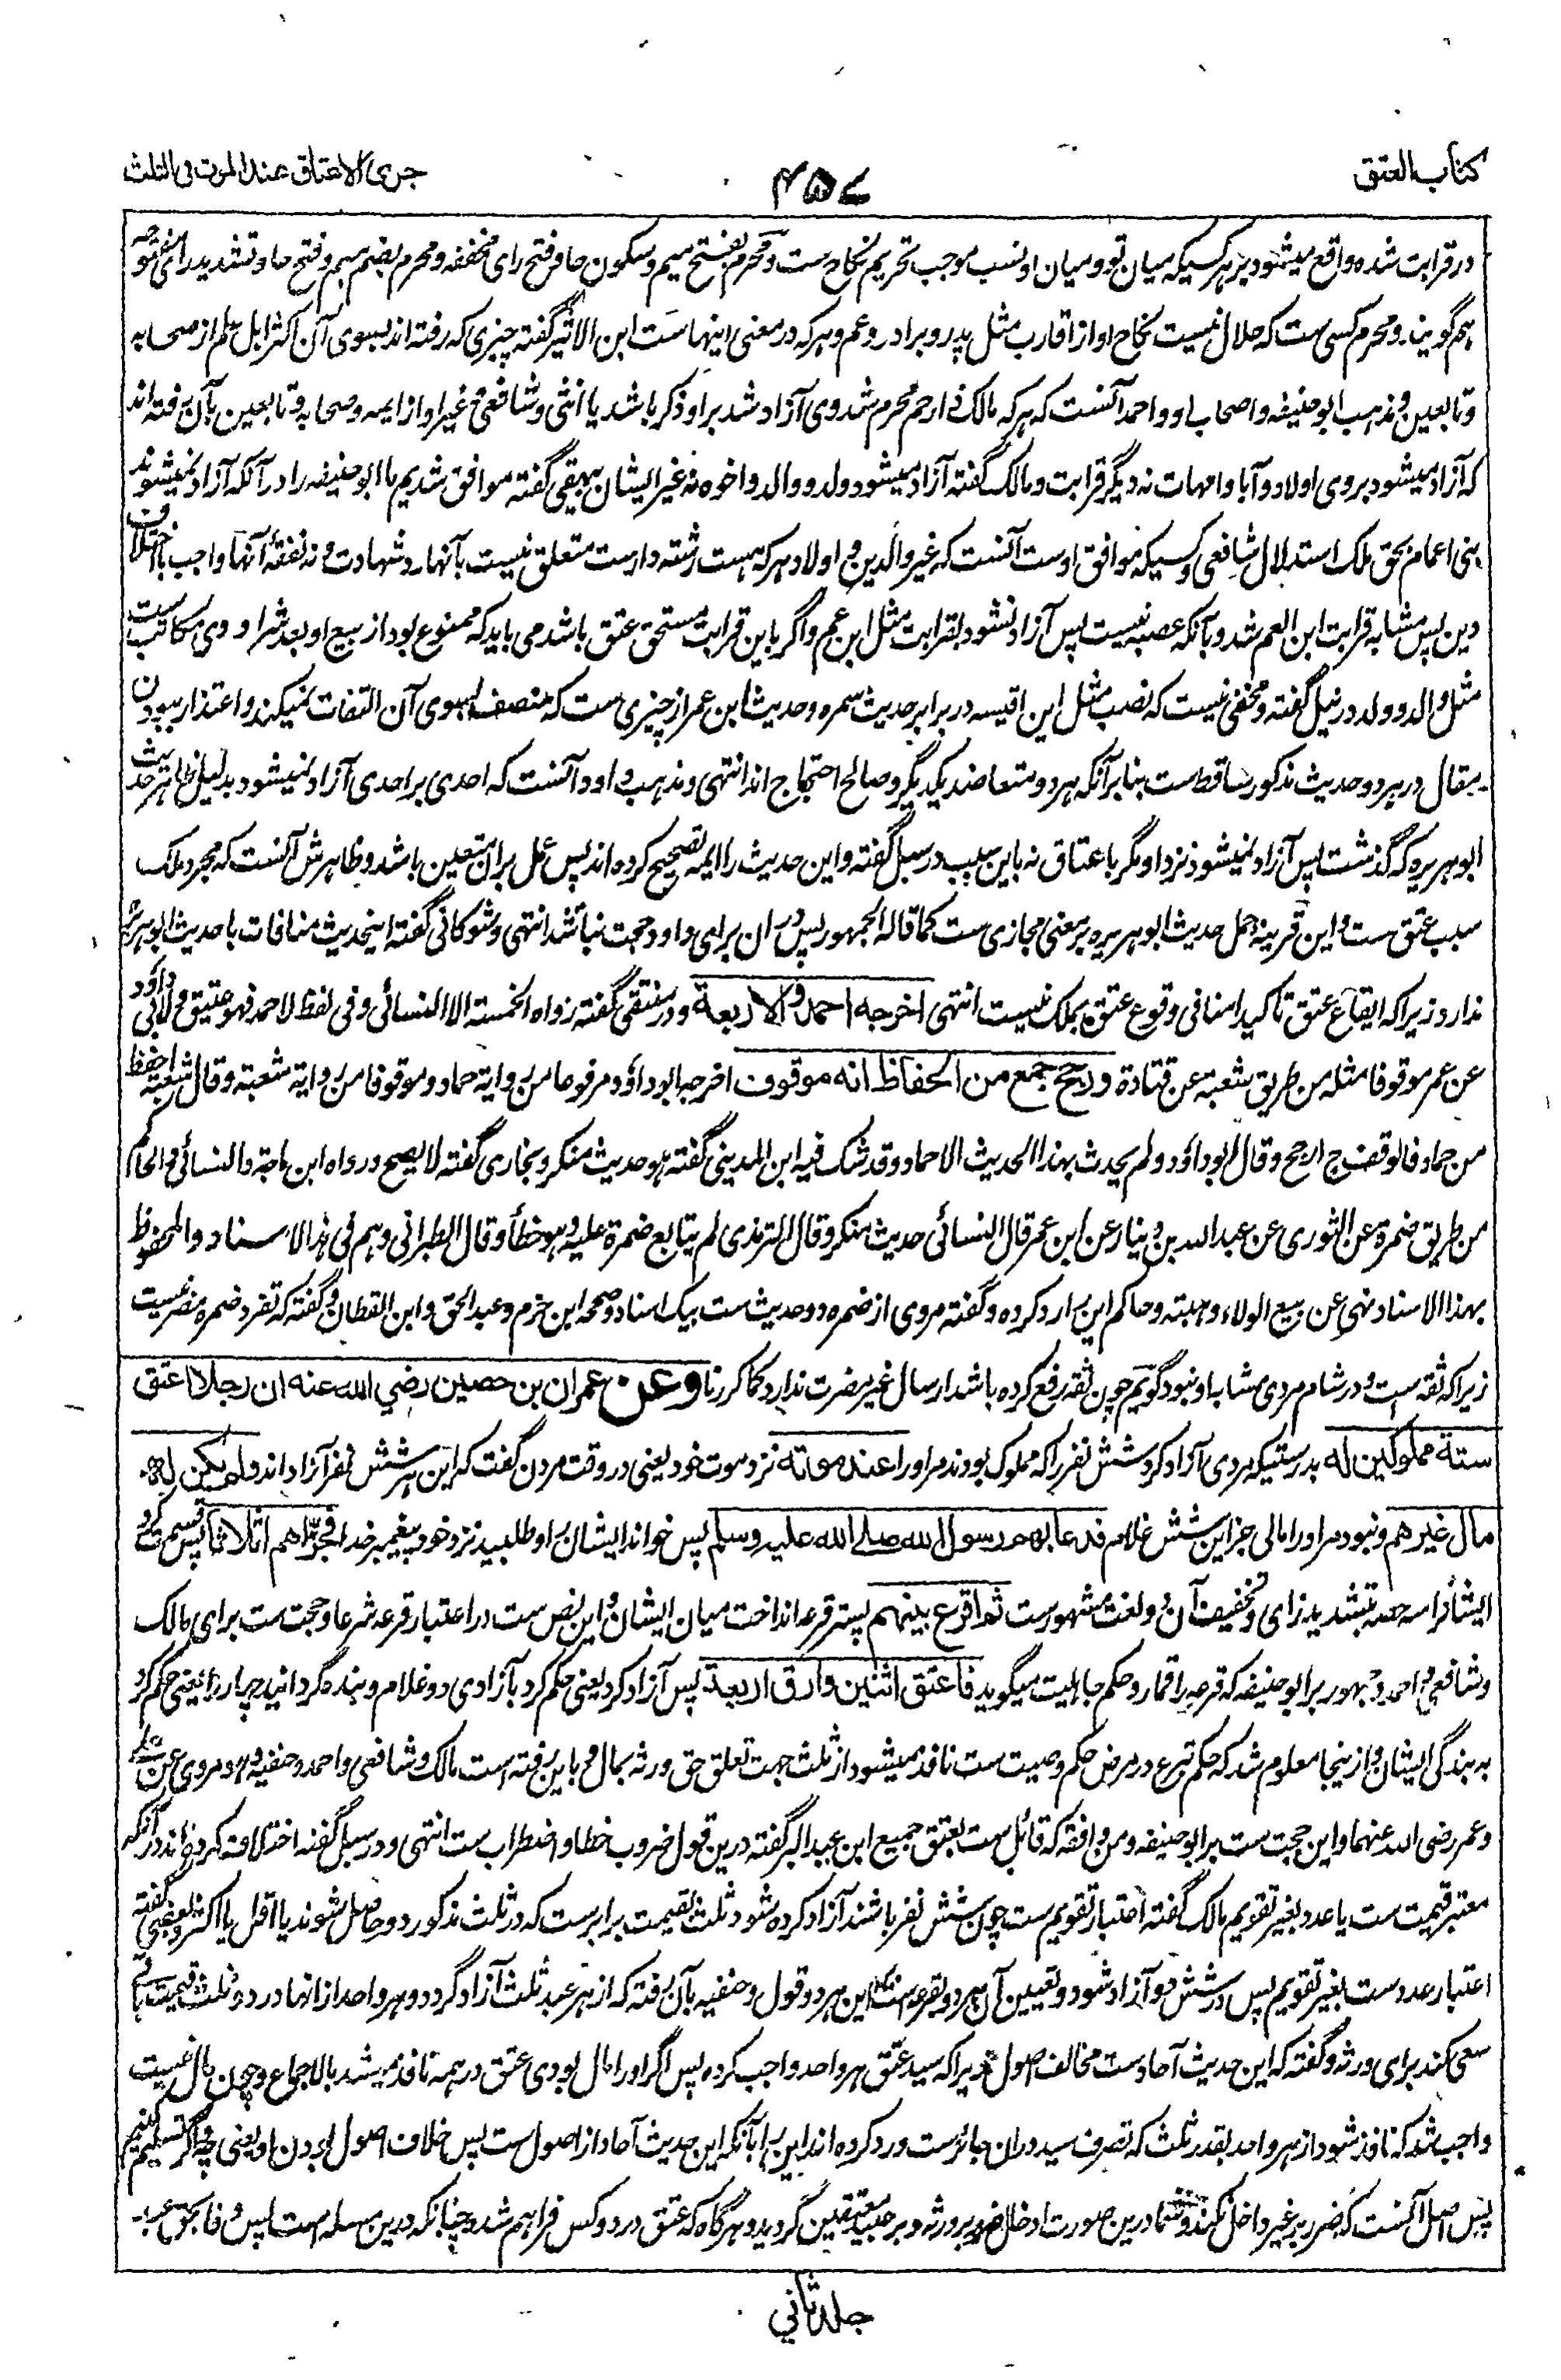 کتاب العتق
۴۵۷
جری الاعتاق عند الموت فی الثلث
در قرابت شده و واقع میشود بر هر کسیکه میان تو و میان او نسب موجب تحریم نکاح ست و محرم بفتح میم و سکون حا و فتح رای مخففه و محرم بضم میم و فتح حا و تشدید رای مفتوحه
هم گویند و محرم کسی ست که حلال نیست نکاح او از اقارب مثل پدر و برادر و عم و هر که در معنی اینهاست ابن الاثیر گفته چیزی که رفته اند بسوی آن اکثر اهل علم از صحابه
و تابعین و مذهب ابو حنیفه و اصحاب او و احمد آنست که هر که مالک ذا رحم محرم شد وی آزاد شد بر او ذکر باشد یا انثی و شافعی و غیر او از ایمه و صحابه و تابعین بآن رفته اند
که آزاد میشود بروی اولاد و آبا و امهات نه دیگر قرابت و مالک گفته آزاد میشود ولد و والد و اخوه نه غیر ایشان بیهقی گفته موافق شدیم ما ابو حنیفه را در آنکه آزاد نمیشوند
بنی اعمام بحق ملک استدلال شافعی و کسیکه موافق اوست آنست که غیر والدین و اولاد هر که هست رشته دارست متعلق نیست بآنها رد شهادت و نه نفقهٔ آنها واجب با اختلاف
دین پس مشابه قرابت ابن العم شد و بآنکه عصبه نیست پس آزاد نشود بقرابت مثل ابن عم و اگر باین قرابت مستحق عتق باشد می باید که ممنوع بود از بیع او بعد شرا و وی مکاتب ست
مثل والد و ولد در نیل گفته و مخفی نیست که نصب مثل این اقیسه در برابر حدیث سمره و حدیث ابن عمر از چیزی ست که منصف بسوی آن التفات نمیکند و اعتذار ببودن
مقال در هر دو حدیث مذکور ساقط ست بنابر آنکه هر دو متعاضد یکدیگر و صالح احتجاج اند انتهی و مذهب داود آنست که احدی بر احدی آزاد نمیشود بدلیل ظاهر حدیث
ابو هریره که گذشت پس آزاد نمیشود نزد او مگر باعتاق نه باین سبب در سبل گفته و این حدیث را ایمه تصحیح کرده اند پس عمل بران متعین باشد و ظاهرش آنست که مجرد ملک
سبب عتق ست و این قرینه حمل حدیث ابو هریره بر معنی مجازی ست کما قاله الجمهور پس دران برای داود حجت نباشد انتهی و شوکانی گفته اینحدیث منافات با حدیث ابو هریره
ندارد زیرا که ایقاع عتق تاکید امنافی وقوع عتق بملک نیست انتهی اخرجه احمد و الاربعة و در منتقی گفته رواه الخمسة الا النسائی و فی لفظ لاحمد فهو عتیق و لابی داود
عن عمر موقوفا مثله من طریق شعبة عن قتادة و رجح جمع من الحفاظ انه موقوف اخرجه ابو داود مرفوعا من روایة حماد و موقوفا من روایة شعبة و قال شعبة احفظ
من حماد فالوقف ح ارجح و قال ابو داود و لم یحدث بهذا الحدیث الا حماد و قد شک فیه ابن المدینی گفته هو حدیث منکر و بخاری گفته لا یصح و رواه ابن ماجة و النسائی و الحاکم
من طریق ضمرة عن الثوری عن عبد الله بن دینار عن ابن عمر قال النسائی حدیث منکر و قال الترمذی لم یتابع ضمرة علیه و هو خطأ و قال الطبرانی وهم فی هذا الاسناد و المحفوظ
بهذا الاسناد نهی عن بیع الولاء و هبته و حاکم این را رد کرده و گفته مروی از ضمره دو حدیث ست بیک اسناد و صححه ابن حزم و عبد الحق و ابن القطان و گفته که تفرد ضمره مضر نیست
زیرا که ثقه است و در شام مردی مشابه او نبود گویم چون ثقه رفع کرده باشد ارسال غیر مضرت ندارد کما کررنا و عن عمران بن حصین رضي الله عنه ان رجلا اعتق
ستة مملوکین له بدرستیکه مردی آزاد کرد شش نفر را که مملوک بودند مر او را عند موته نزد موت خود یعنی در وقت مردن گفت که این هر شش نفر آزاد اند و لم یکن له
مال غیرهم و نبود مر او را مالی جز این شش غلام فدعا بهم رسول الله صلے الله علیه وسلم پس خواند ایشان را و طلبید نزد خود پیغمبر خدا فجزّاهم اثلاثا پس قسم کرد
ایشانرا سه حصه بتشدید زای و تخفیف آن دو لغت مشهورست ثم اقرع بینهم پستر قرعه انداخت میان ایشان و این نص ست در اعتبار قرعه شرعا و حجت ست برای مالک
و شافعی و احمد و جمهور بر ابو حنیفه که قرعه را قمار و حکم جاهلیت میگوید فاعتق اثنین و ارق اربعة پس آزاد کرد یعنی حکم کرد بآزادی دو غلام و بنده گردانید چهار را یعنی حکم کرد
به بندگی ایشان و ازینجا معلوم شد که حکم تبرع در مرض حکم وصیت ست نافذ میشود از ثلث جهت تعلق حق ورثه بمال و باین رفته است مالک و شافعی و احمد و حنفیه و هو مروی عن علی
و عمر رضی الله عنهما و این حجت ست بر ابو حنیفه و من وافقه که قائل ست بعتق جمیع ابن عبد البر گفته درین قول ضروب خطا و اضطراب ست انتهی و در سبل گفته اختلاف کرده اند در آنکه
معتبر قیمت ست یا عدد بغیر تقویم مالک گفته اعتبار تقویم ست چون شش نفر باشند آزاد کرده شود ثلث بقیمت برابرست که در ثلث مذکور دو حاصل شوند یا اقل یا اکثر و بعضی گفته
اعتبار عددست بغیر تقویم پس در شش دو آزاد شود و تعیین آن هر دو بقرعه است این هر دو قول و حنفیه بآن رفته که از هر عبد ثلث آزاد گردد و هر واحد از انها در دو ثلث قیمت باقی
سعی کند برای ورثه و گفته که این حدیث آحادست مخالف اصول زیرا که سید عتق هر واحد واجب کرده پس اگر او را مال بودی عتق در همه نافذ میشد بالاجماع و چون مال نیست
واجب شد که نافذ شود از هر واحد بقدر ثلث که تصرف سید دران جائزست و رد کرده اند این را بآنکه این حدیث آحاد از اصول ست پس خلاف اصول بودن او یعنی چه و اگر تسلیم کنیم
پس اصل آنست که ضرر بر غیر داخل نکند و شما درین صورت ادخال ضرر بر ورثه و بر عبید معتقین گردید و هرگاه که عتق در دو کس فراهم شد چنانکه درین مسله است پس وفا بحق عبد
جلد ثاني